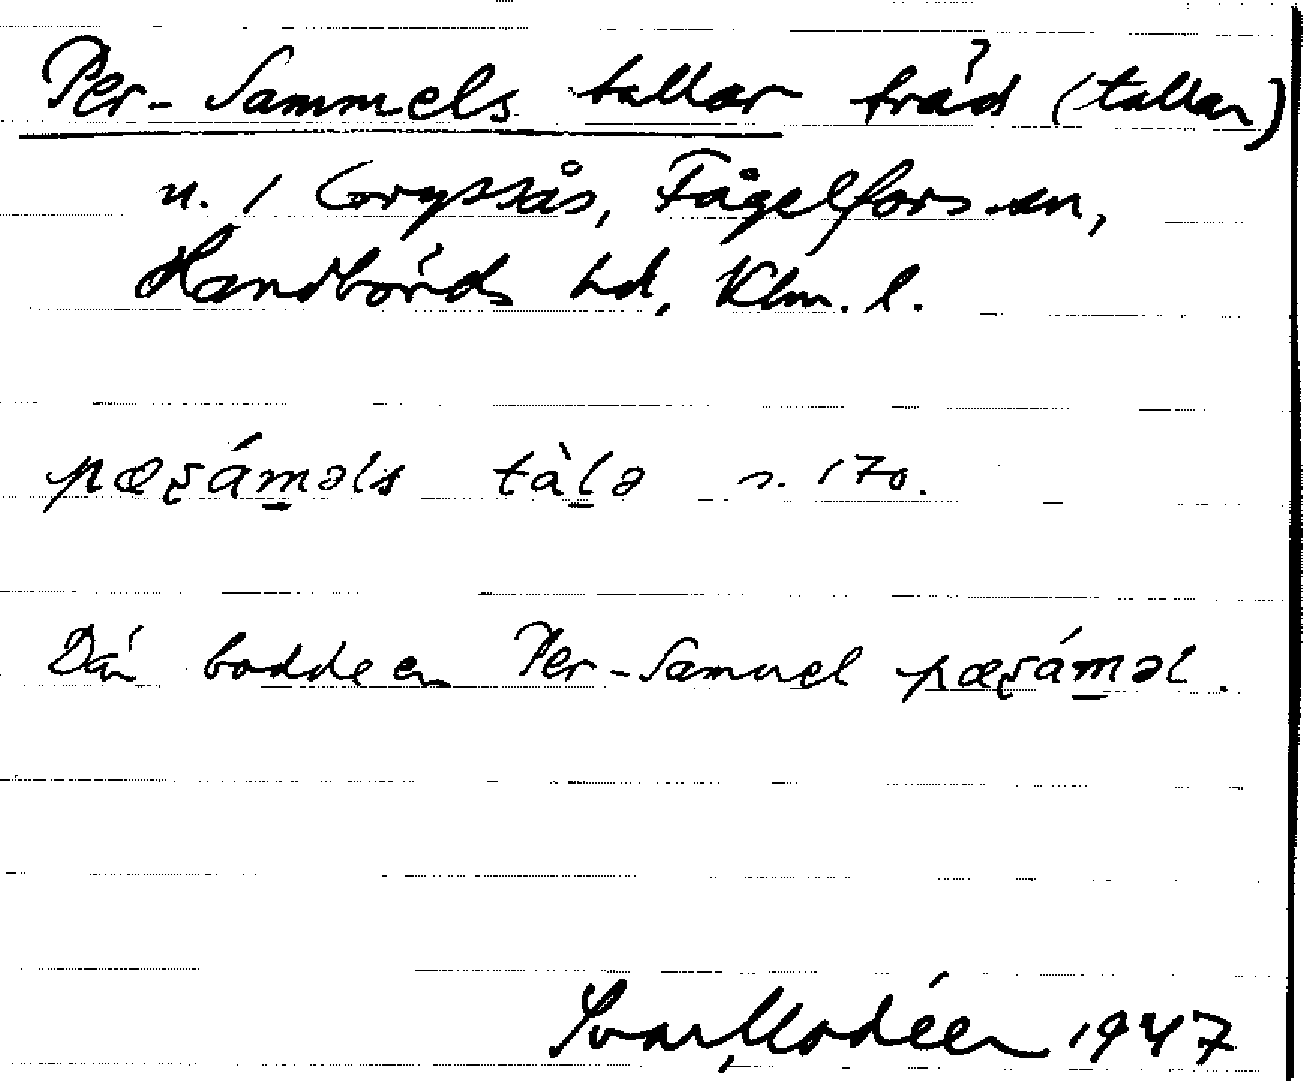 Per-Sammels tallar träd (tallar)
n. 1 Gryssås, Fågelfors sn,
Handbörds hd, Klm. l.
pæʂáməls tàlə n. 170.
Där bodde en Per-Samuel pæʂáməl.
Ivar Modéer 1947